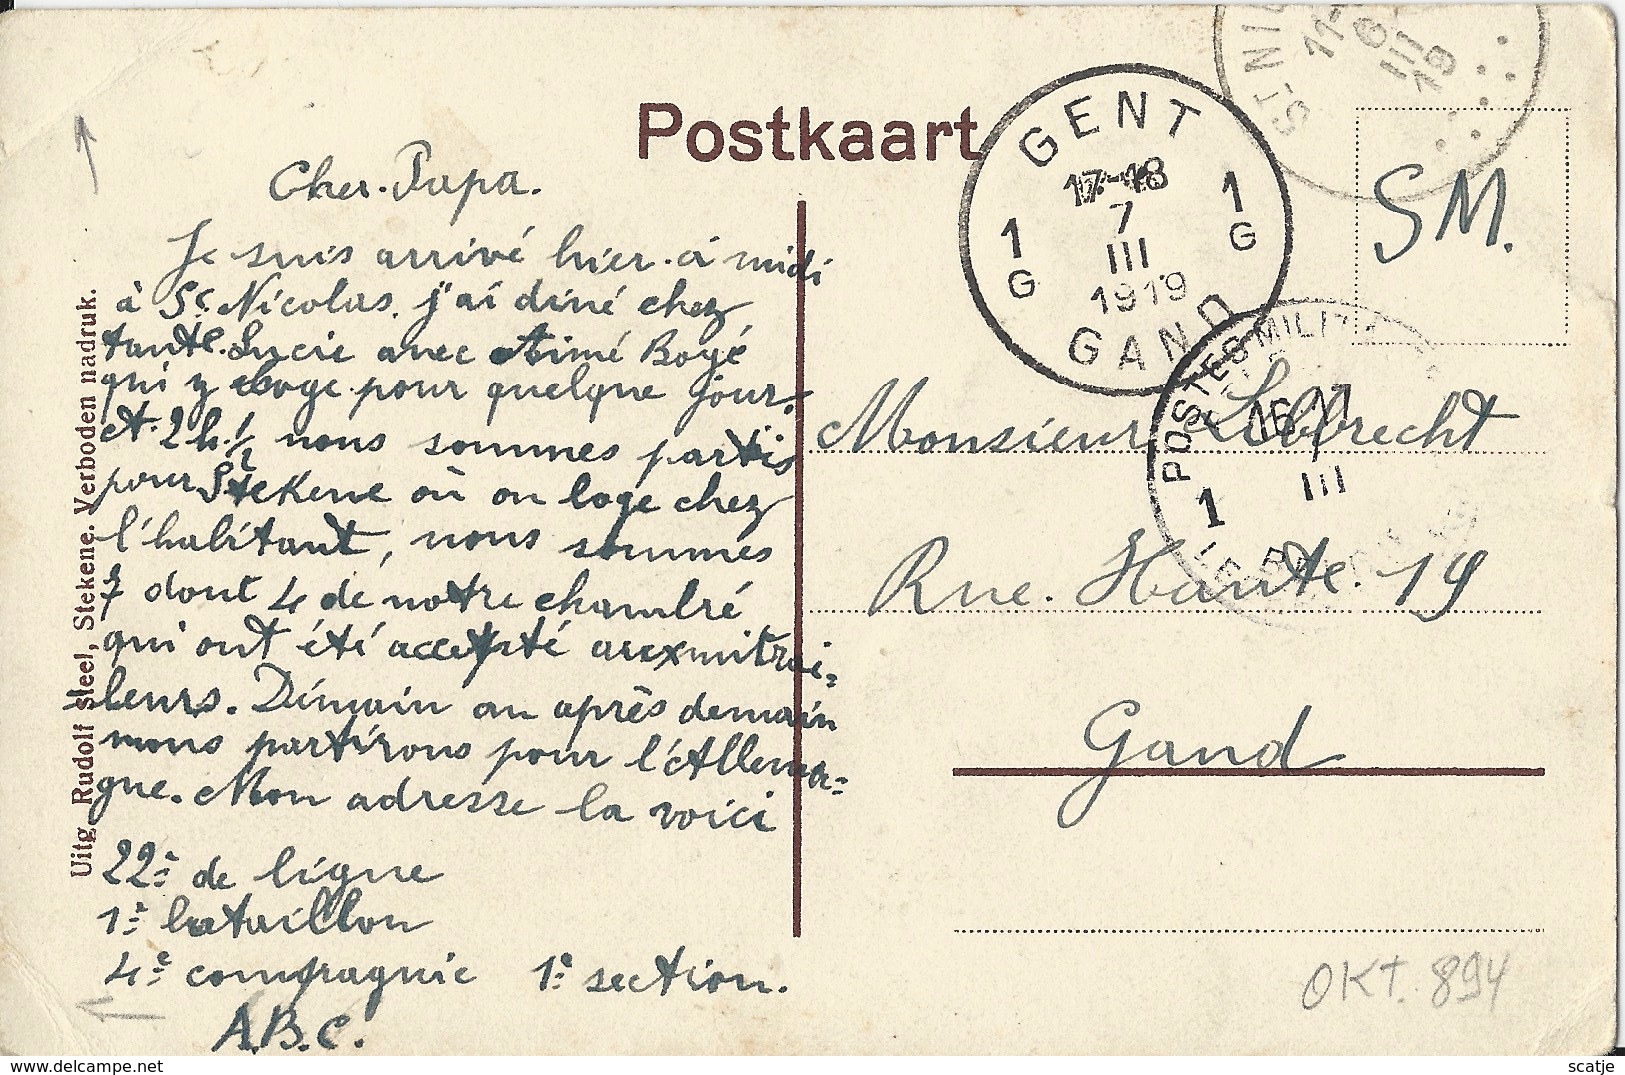 Postkaart
ST-NI
11-
6
III
19
GENT
17-18
7
III
1919
1
G
1
G
GAND
SM.
POSTES MILIT
1
III
Cher. Papa.
Je suis arrivé hier. à midi
à St. Nicolas. j'ai diné chez
tante. Lucie avec Aimé Boyé
qui y loge pour quelque jour.
A. 2 h. 1/2 nous sommes partis
pour Stekene où on loge chez
l'habitant, nous sommes
7 dont 4 de notre chambré
qui ont été accepté mitrai=
leurs. Démain ou après demain
nous partirons pour l'Allema=
gne. Mon adresse la voici
22e de ligne
1e bataillon
4e compagnie 1e section.
A.B.C.
Uitg. Rudolf Steel, Stekene. Verboden nadruk.
Monsieur Libbrecht
Rue. Haute. 19
Gand
OKT. 894
www.delcampe.net
scatje